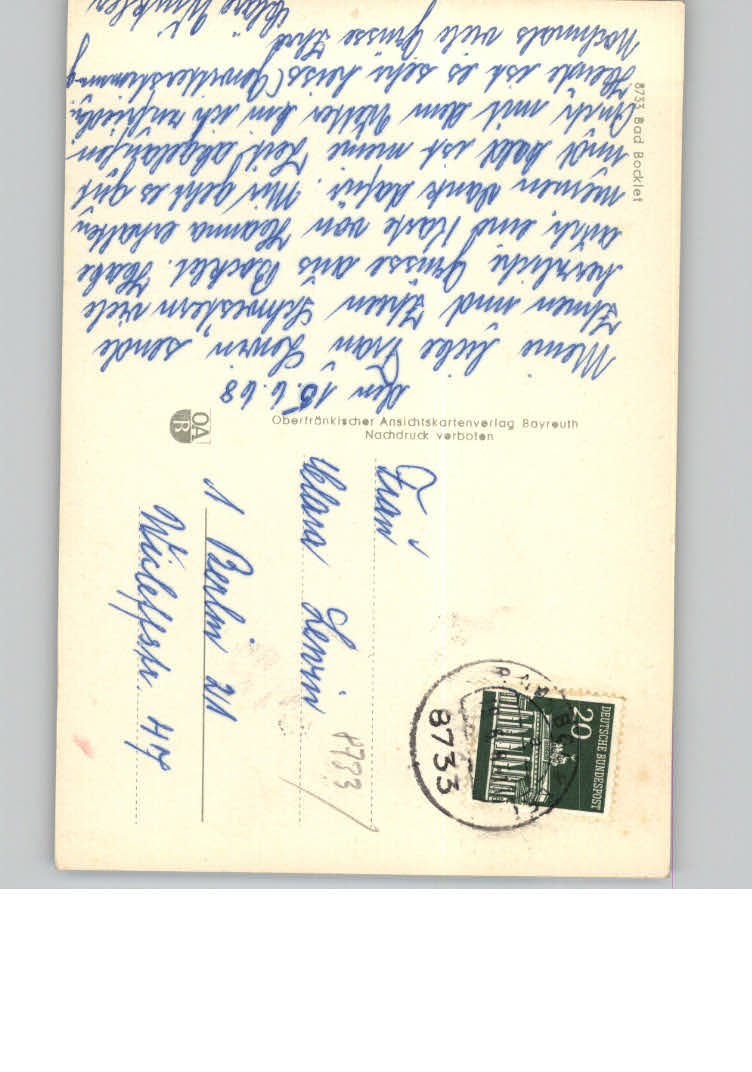 8733 Bad Bocklet
den 15.6.68
Meine liebe Frau Lewin, sende
Ihnen und Ihren Schwestern viele
herzliche Grüsse aus Bocklet. Habe
auch eine Karte von Hanna erhalten
meinen Dank dafür. Mir geht es gut
und bald ist meine Zeit abgelaufen.
Auch mit dem Wetter bin ich zufrieden.
Heute ist es sehr heiss (Gewitterstimmung
Nochmals viele Grüsse Ihre
Klare Winkler
Oberfränkischer Ansichtskartenverlag Bayreuth
Nachdruck verboten
OA
B
Frau
Klara Lewin
1 Berlin 21
Wiclefstr. 47
8733
DEUTSCHE BUNDESPOST
20
8733